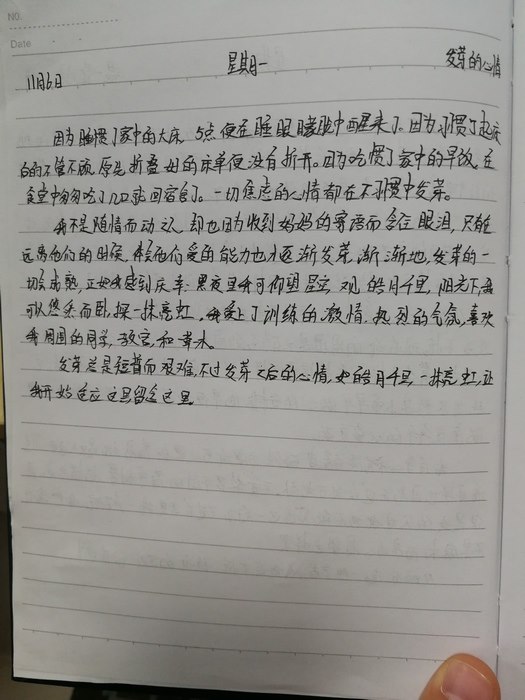 No.
Date
11月6日 星期一 发芽的心情
因为睡惯了家中的大床,5点便在睡眼朦胧中醒来了。因为习惯了起床
的不管不顾,原先折叠好的床单便没有折开。因为吃惯了家中的早饭,在
食堂中匆匆吃了几口就回宿舍了。一切焦虑的心情都在不习惯中发芽。
我不是随情而动之人,却也因为收到妈妈的寄语而含泪,只有在
远离他们的时候,体会他们爱的能力也逐渐发芽,渐渐地,发芽的一
切会成熟,正如我感到庆幸:黑夜里我可仰望星空,观皓月千里,阳光下,
可以悠乐而卧,探一抹亮虹,我爱上了训练的激情,热烈的气氛,喜欢
我周围的同学,教官,和
发芽总是短暂而艰难,不过发芽之后的心情,如皓月千里,一抹亮虹,让
我开始适应这里留念这里。